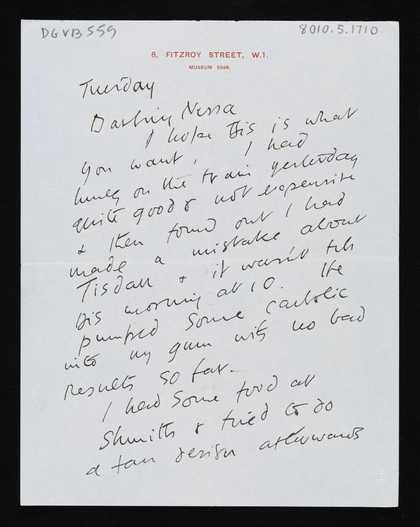 DGVB 559
8010.5.1710
8, FITZROY STREET, W.1.
MUSEUM
Tuesday
Darling Nessa
I hope this is what
you want. I had
lunch on the train yesterday
quite good & not expensive
& then found out I had
made a mistake about
Tisdall & it wasn't till
this morning at 10. He
pumped some carbolic
into my gum with no bad
results so far.
I had some food at
& tried to do
a fan design afterwards